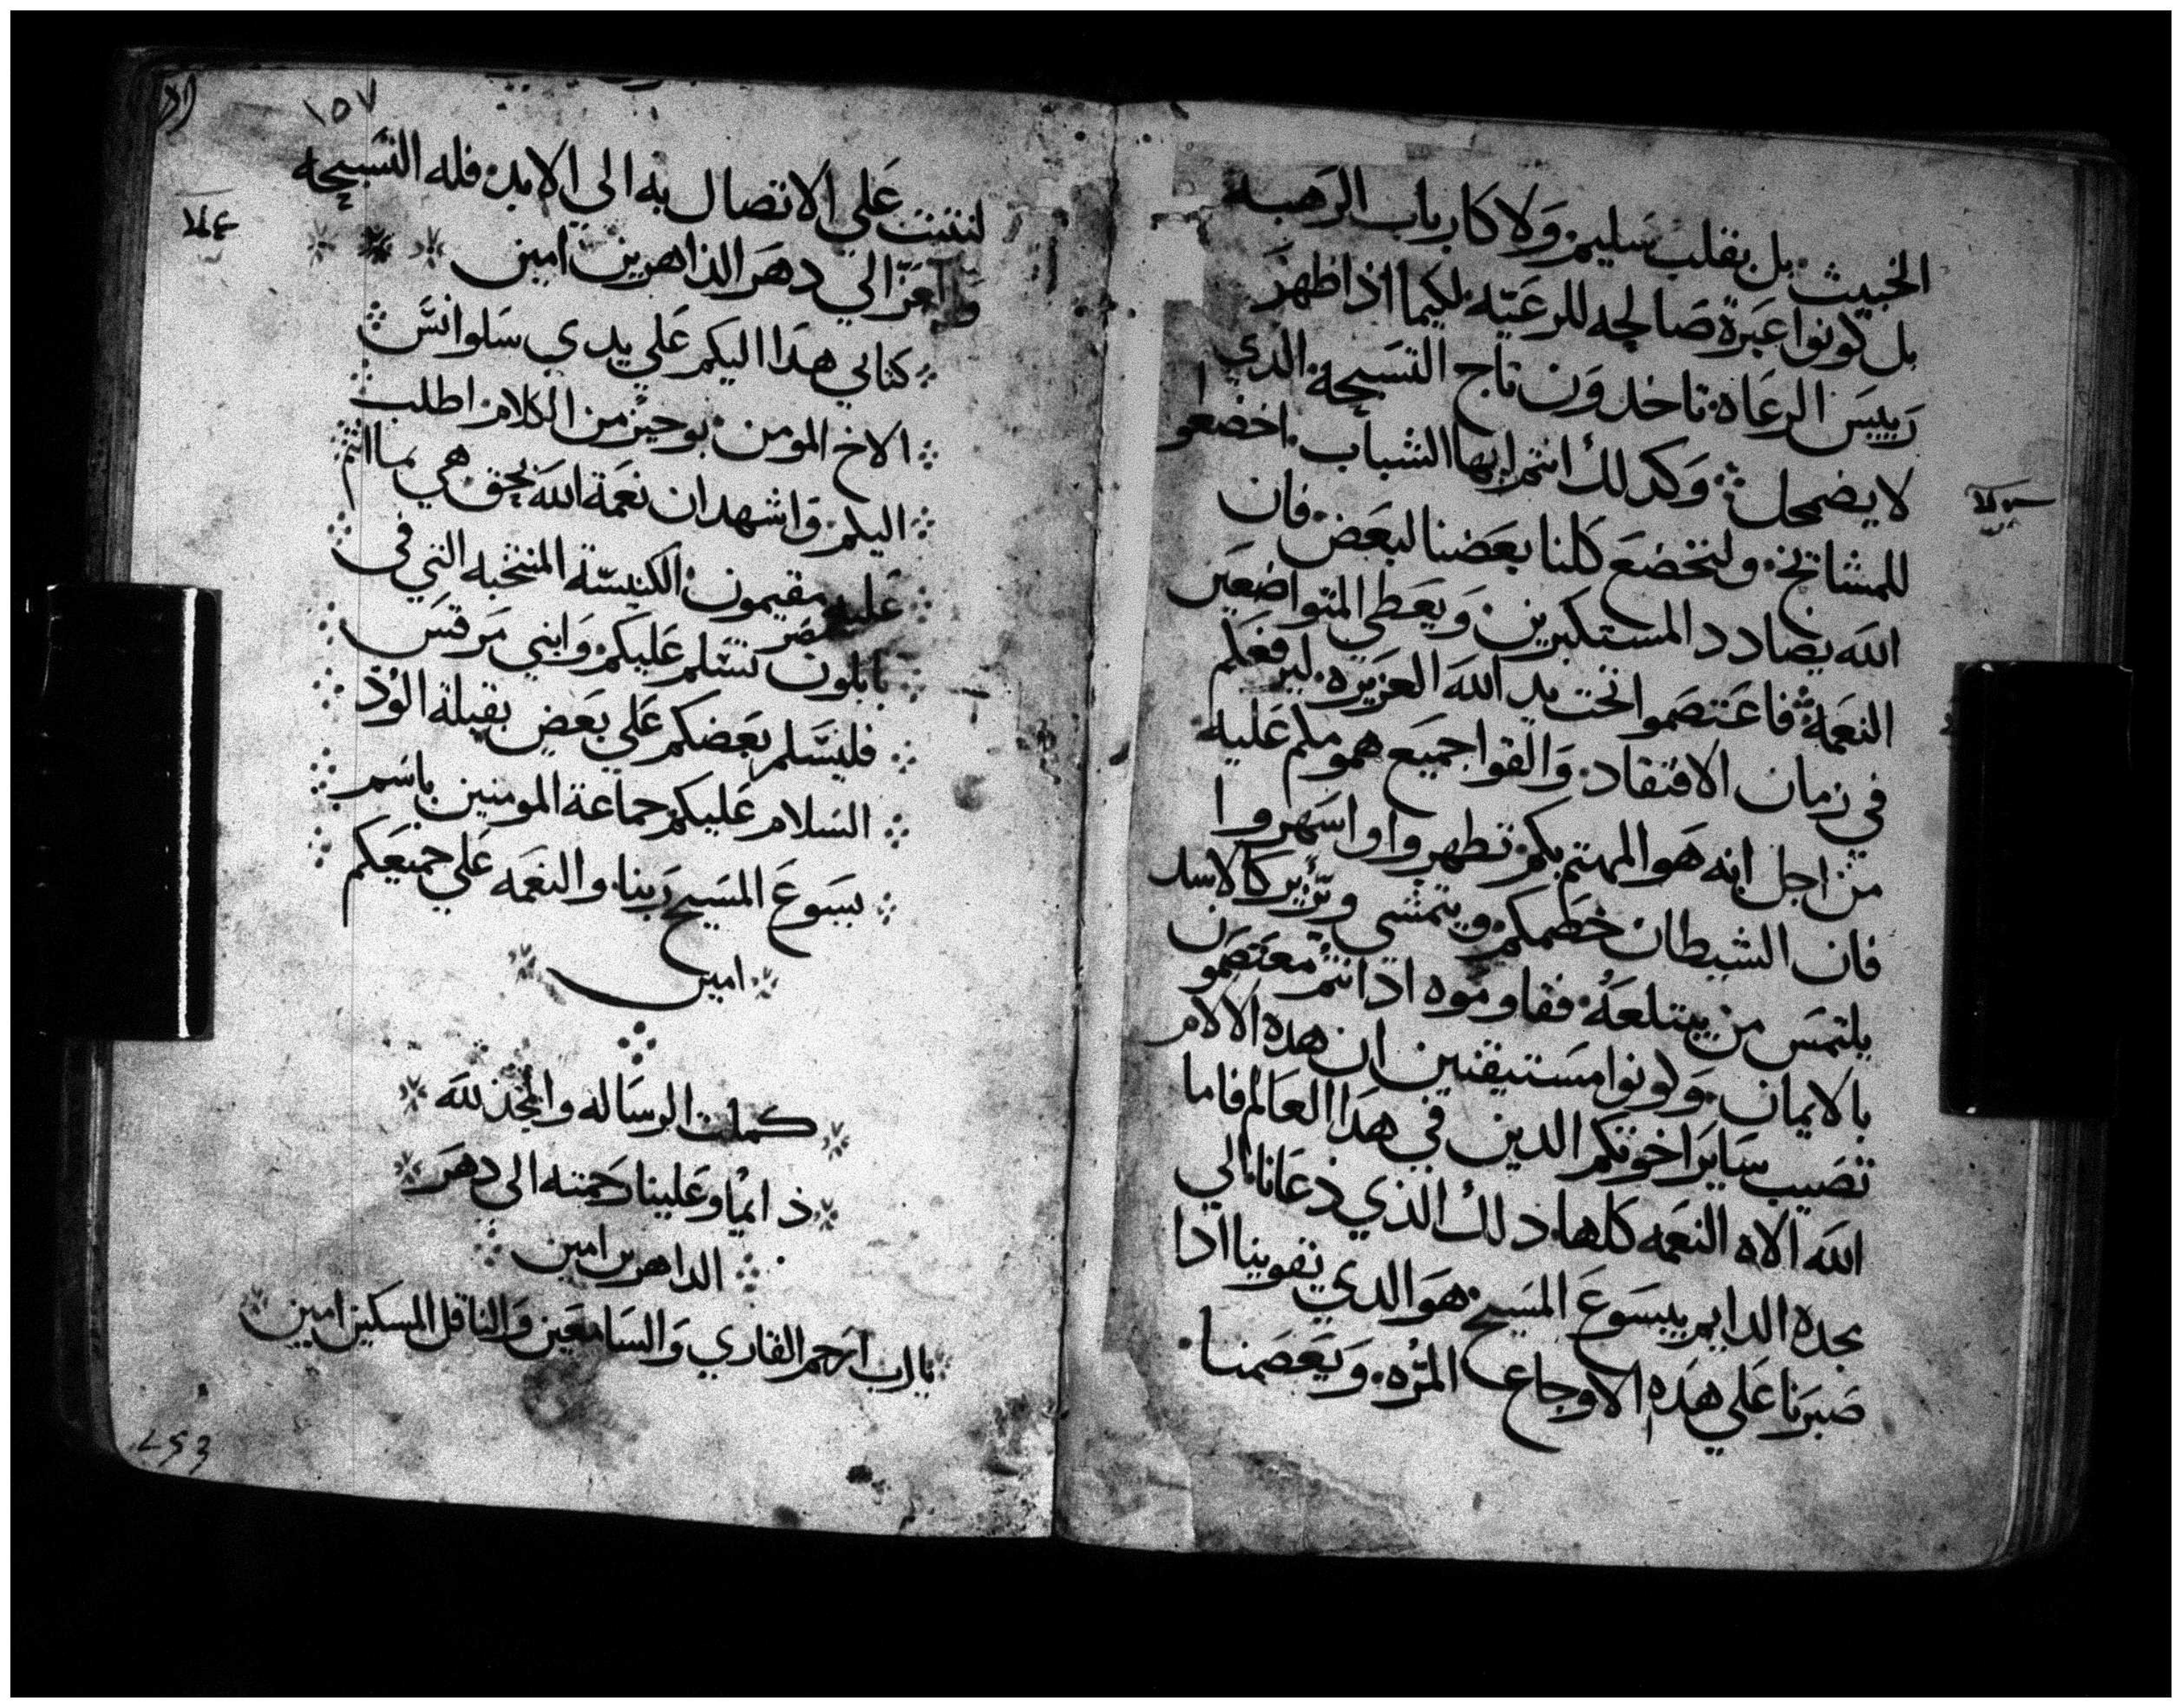 الخبيث بل بقلب سليم ولا كارباب الرهبه
بل كونوا عبرة صالحه للرعيّه لكيما اذا ظهر
رييس الرعاه تاخدون تاج التسبحة الدي
لا يضمحل وكدلك انتم ايها الشباب اخضعوا
للمشائخ ولنخضع كلنا بعضنا لبعض فان
الله يضادد المستكبرين ويعطي المتواضعين
النعمة فاعتصموا تحت يد الله العزيزه ليرفعكم
في زمان الافتقاد والقوا جميع همومكم عليه
من اجل انه هو المهتم بكم تطهروا واسهروا
فان الشيطان خصمكم ويتمشي ويزير كالاسد
يلتمس من يبتلعه فقاوموه اذ انتم معتصمون
بالايمان وكونوا مستيقنين ان هده الالام
تصيب ساير اخوتكم الدين في هدا العالم فاما
الله الاه النعمه كلها دلك الذي دعانا الي
مجده الدايم بيسوع المسيح هو الدي يقوينا ادا
صبرنا علي هده الاوجاع المرّه ويعصمنا
١٥٧
لنثبت علي الاتصال به الي الابد فله التسبحه
والعزّ الي دهر الداهرين امين
كتابي هدا اليكم علي يدي سلوانس
الاخ المومن بوحيز من الكلام اطلب
اليكم واشهد ان نعمة الله بحق هي ما انتم
عليه مقيمون الكنيسة المنتخبه التي في
مصر
بابلون تسلم عليكم وابني مرقس
فليسلم بعضكم علي بعض بقبلة الودّ
السلام عليكم جماعة المومنين باسم
يسوع المسيح ربنا والنعمه علي جميعكم
امين
كملت الرساله والمجد لله
دايما وعلينا رحمته الى دهر
الداهرين امين
يا رب ارحم القاري والسامعين والناقل المسكين امين
253